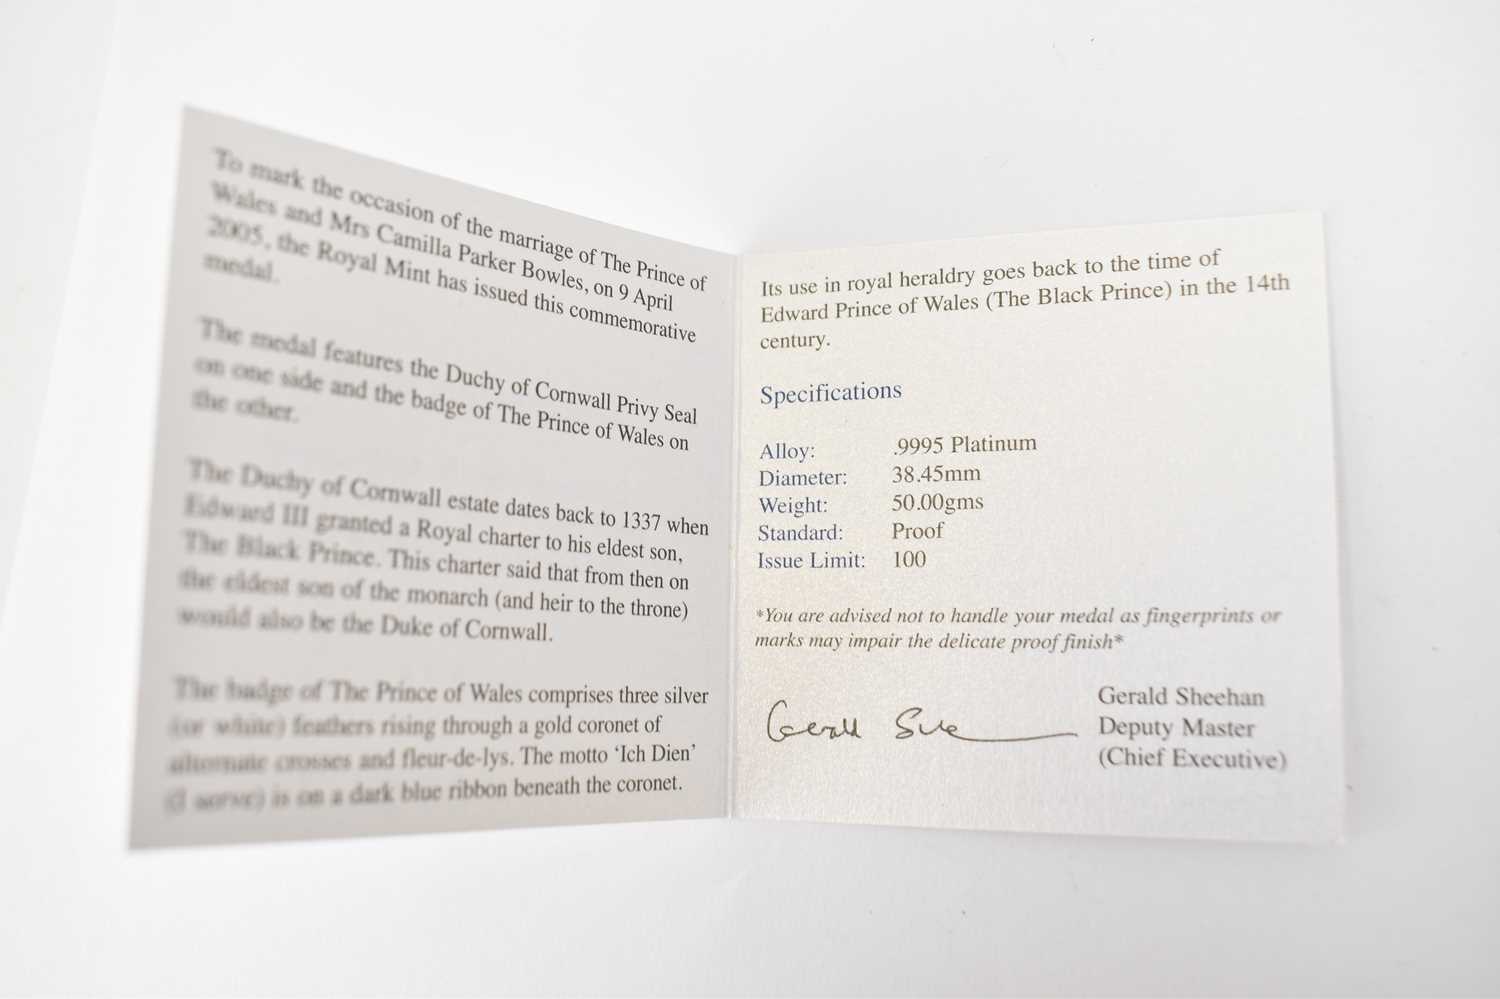 To mark the occasion of the marriage of The Prince of
Wales and Mrs Camilla Parker Bowles, on 9 April
2005, the Royal Mint has issued this commemorative
medal.
The medal features the Duchy of Cornwall Privy Seal
on one side and the badge of The Prince of Wales on
the other.
The Duchy of Cornwall estate dates back to 1337 when
Edward III granted a Royal charter to his eldest son,
The Black Prince. This charter said that from then on
the eldest son of the monarch (and heir to the throne)
would also be the Duke of Cornwall.
The badge of The Prince of Wales comprises three silver
(or white) feathers rising through a gold coronet of
alternate crosses and fleur-de-lys. The motto ‘Ich Dien’
(I serve) is on a dark blue ribbon beneath the coronet.
Its use in royal heraldry goes back to the time of
Edward Prince of Wales (The Black Prince) in the 14th
century.
Specifications
Alloy: .9995 Platinum
Diameter: 38.45mm
Weight: 50.00gms
Standard: Proof
Issue Limit: 100
*You are advised not to handle your medal as fingerprints or
marks may impair the delicate proof finish*
Gerald Sheehan
Deputy Master
(Chief Executive)